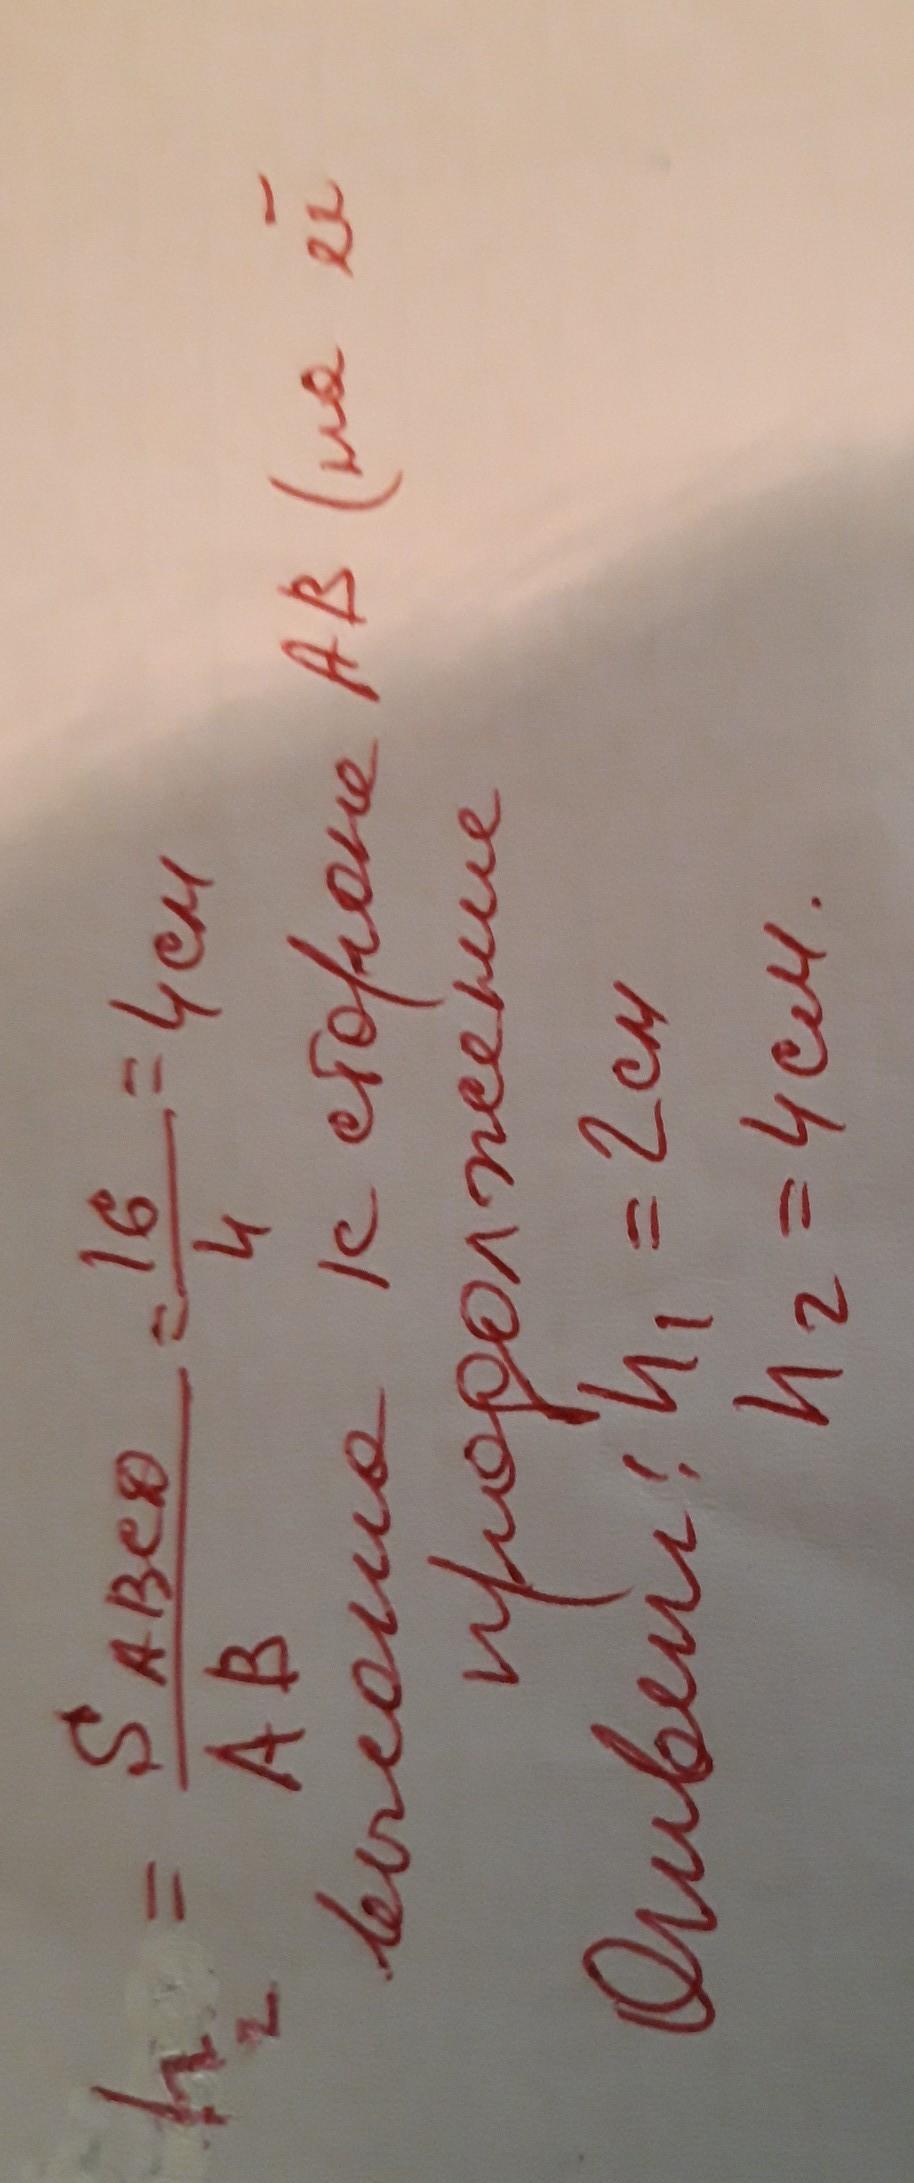 h₂ = S ABCD / AB = 16 / 4 = 4 см
высота к стороне AB (на её
продолжение
Ответ: h₁ = 2 см
h₂ = 4 см.